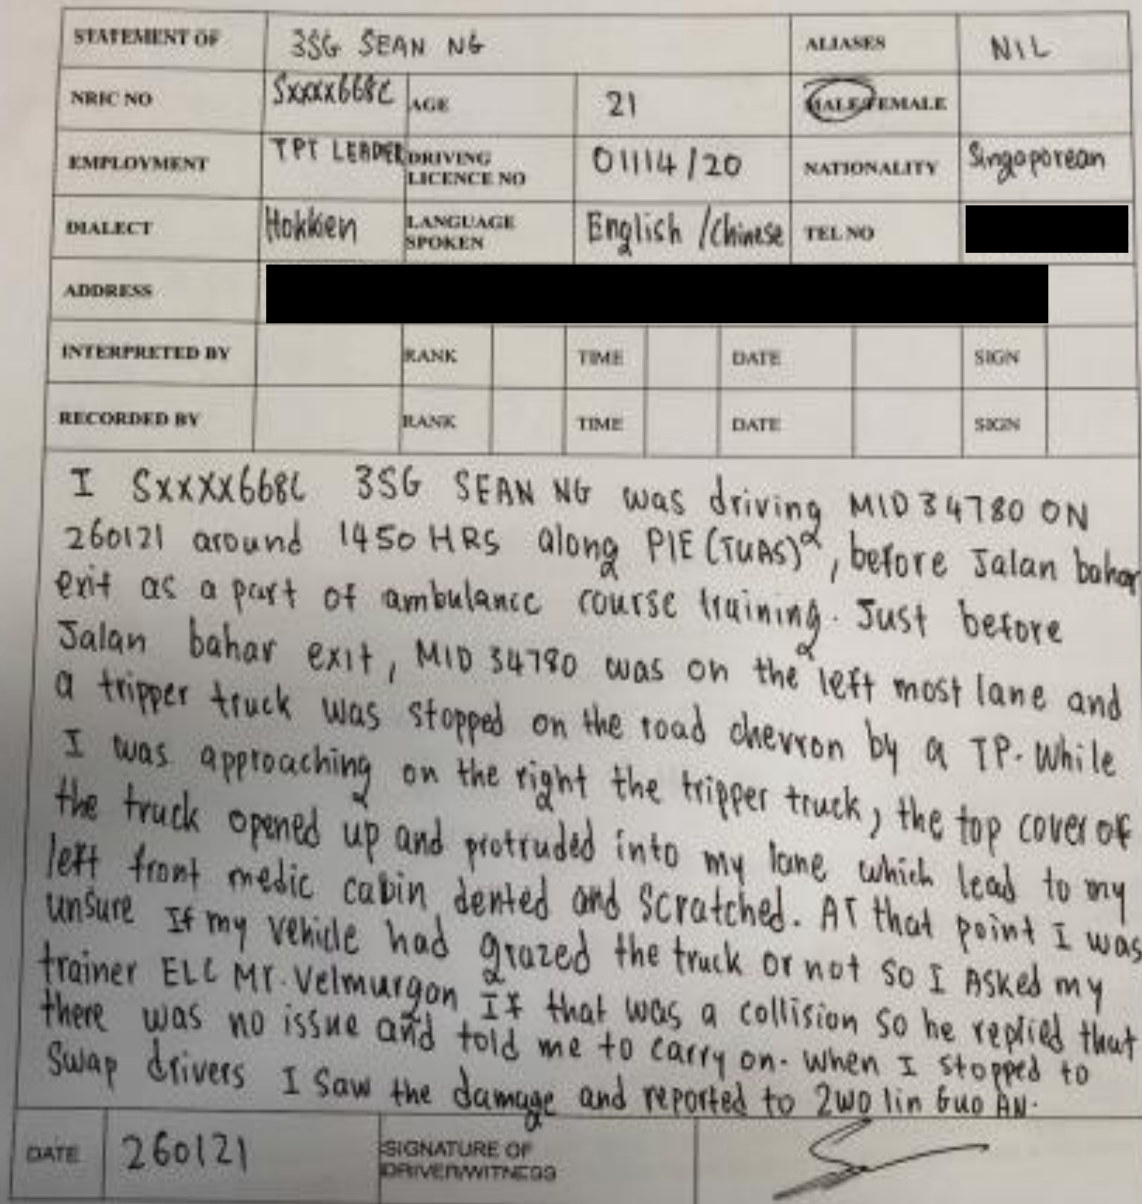 STATEMENT OF 3SG SEAN NG ALIASES NIL
NRIC NO Sxxxx668C AGE 21 MALE/FEMALE
EMPLOYMENT TPT LEADER DRIVING LICENCE NO 01114/20 NATIONALITY Singaporean
DIALECT Hokkien LANGUAGE SPOKEN English /Chinese TEL NO
ADDRESS
INTERPRETED BY RANK TIME DATE SIGN
RECORDED BY RANK TIME DATE SIGN
I SXXXX668C 3SG SEAN NG was driving MID 34780 ON
260121 around 1450 HRS along PIE (TUAS), before Jalan bahar
exit as a part of ambulance course training. Just before
Jalan bahar exit, MID 34780 was on the left most lane and
a tripper truck was stopped on the road chevron by a TP. While
I was approaching on the right the tripper truck, the top cover of
the truck opened up and protruded into my lane which lead to my
left front medic cabin dented and scratched. AT that point I was
unsure If my vehicle had grazed the truck or not so I Asked my
trainer ELC Mr. Velmurgon If that was a collision so he replied that
there was no issue and told me to carry on. when I stopped to
Swap drivers I saw the damage and reported to 2WO lin Guo AN.
DATE 260121 SIGNATURE OF DRIVER/WITNESS